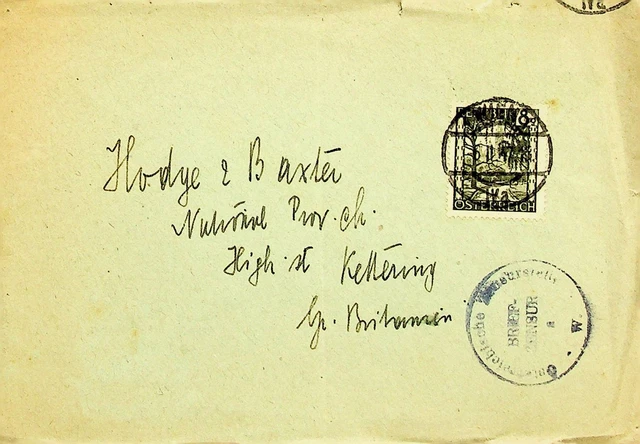 Hodye & Baxter
National Prov. ch.
High. st Kettering
Gr. Britannien
8
ÖSTERREICH
IVa
IVa
Österreichische Zensurstelle
BRIEF-
ZENSUR
a
W.